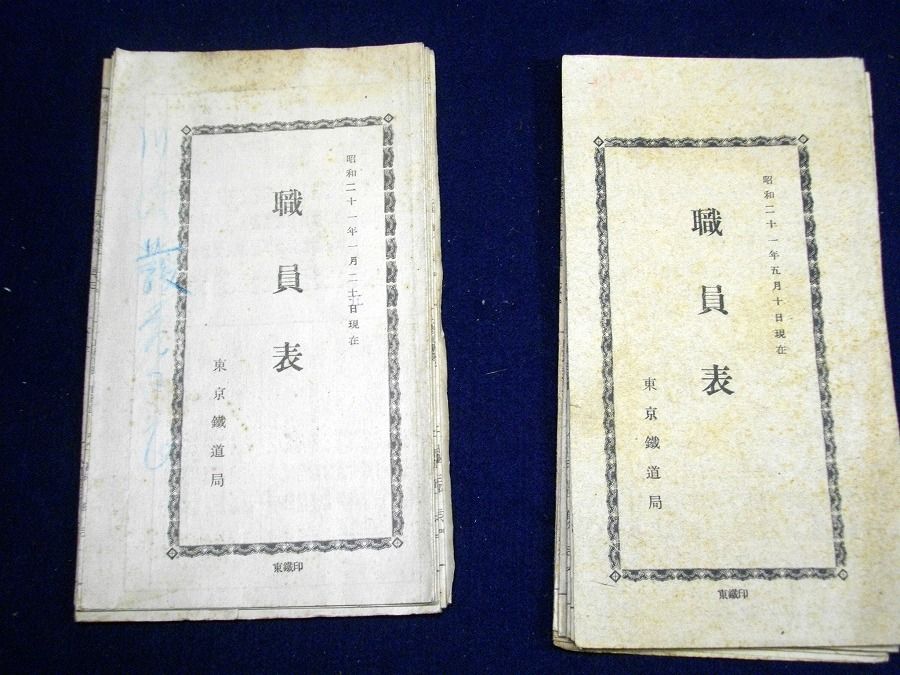 昭和二十一年一月二十日現在
職員表
東京鐵道局
東鐵印
昭和二十一年五月十日現在
職員表
東京鐵道局
東鐵印